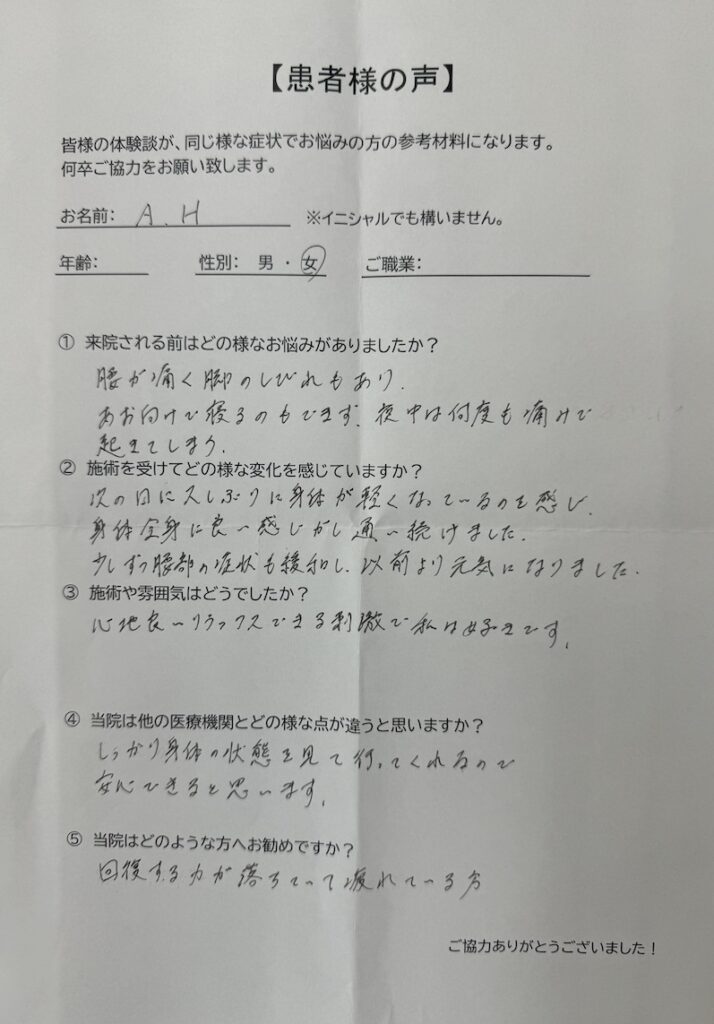 【患者様の声】
皆様の体験談が、同じ様な症状でお悩みの方の参考材料になります。
何卒ご協力をお願い致します。
お名前: A.H ※イニシャルでも構いません。
年齢: 性別: 男 ・ 女 ご職業:
① 来院される前はどの様なお悩みがありましたか?
腰が痛く脚のしびれもあり.
あお向けで寝るのもできず. 夜中は何度も痛みで
起きてしまう.
② 施術を受けてどの様な変化を感じていますか?
次の日に久しぶりに身体が軽くなっているのを感じ.
身体全身に良い感じがし通い続けました.
少しずつ腰部の症状も緩和し. 以前より元気になりました.
③ 施術や雰囲気はどうでしたか?
心地良いリラックスできる刺激で私は好きです.
④ 当院は他の医療機関とどの様な点が違うと思いますか?
しっかり身体の状態を見て行ってくれるので
安心できると思います.
⑤ 当院はどのような方へお勧めですか?
回復する力が落ちていって疲れている方
ご協力ありがとうございました!